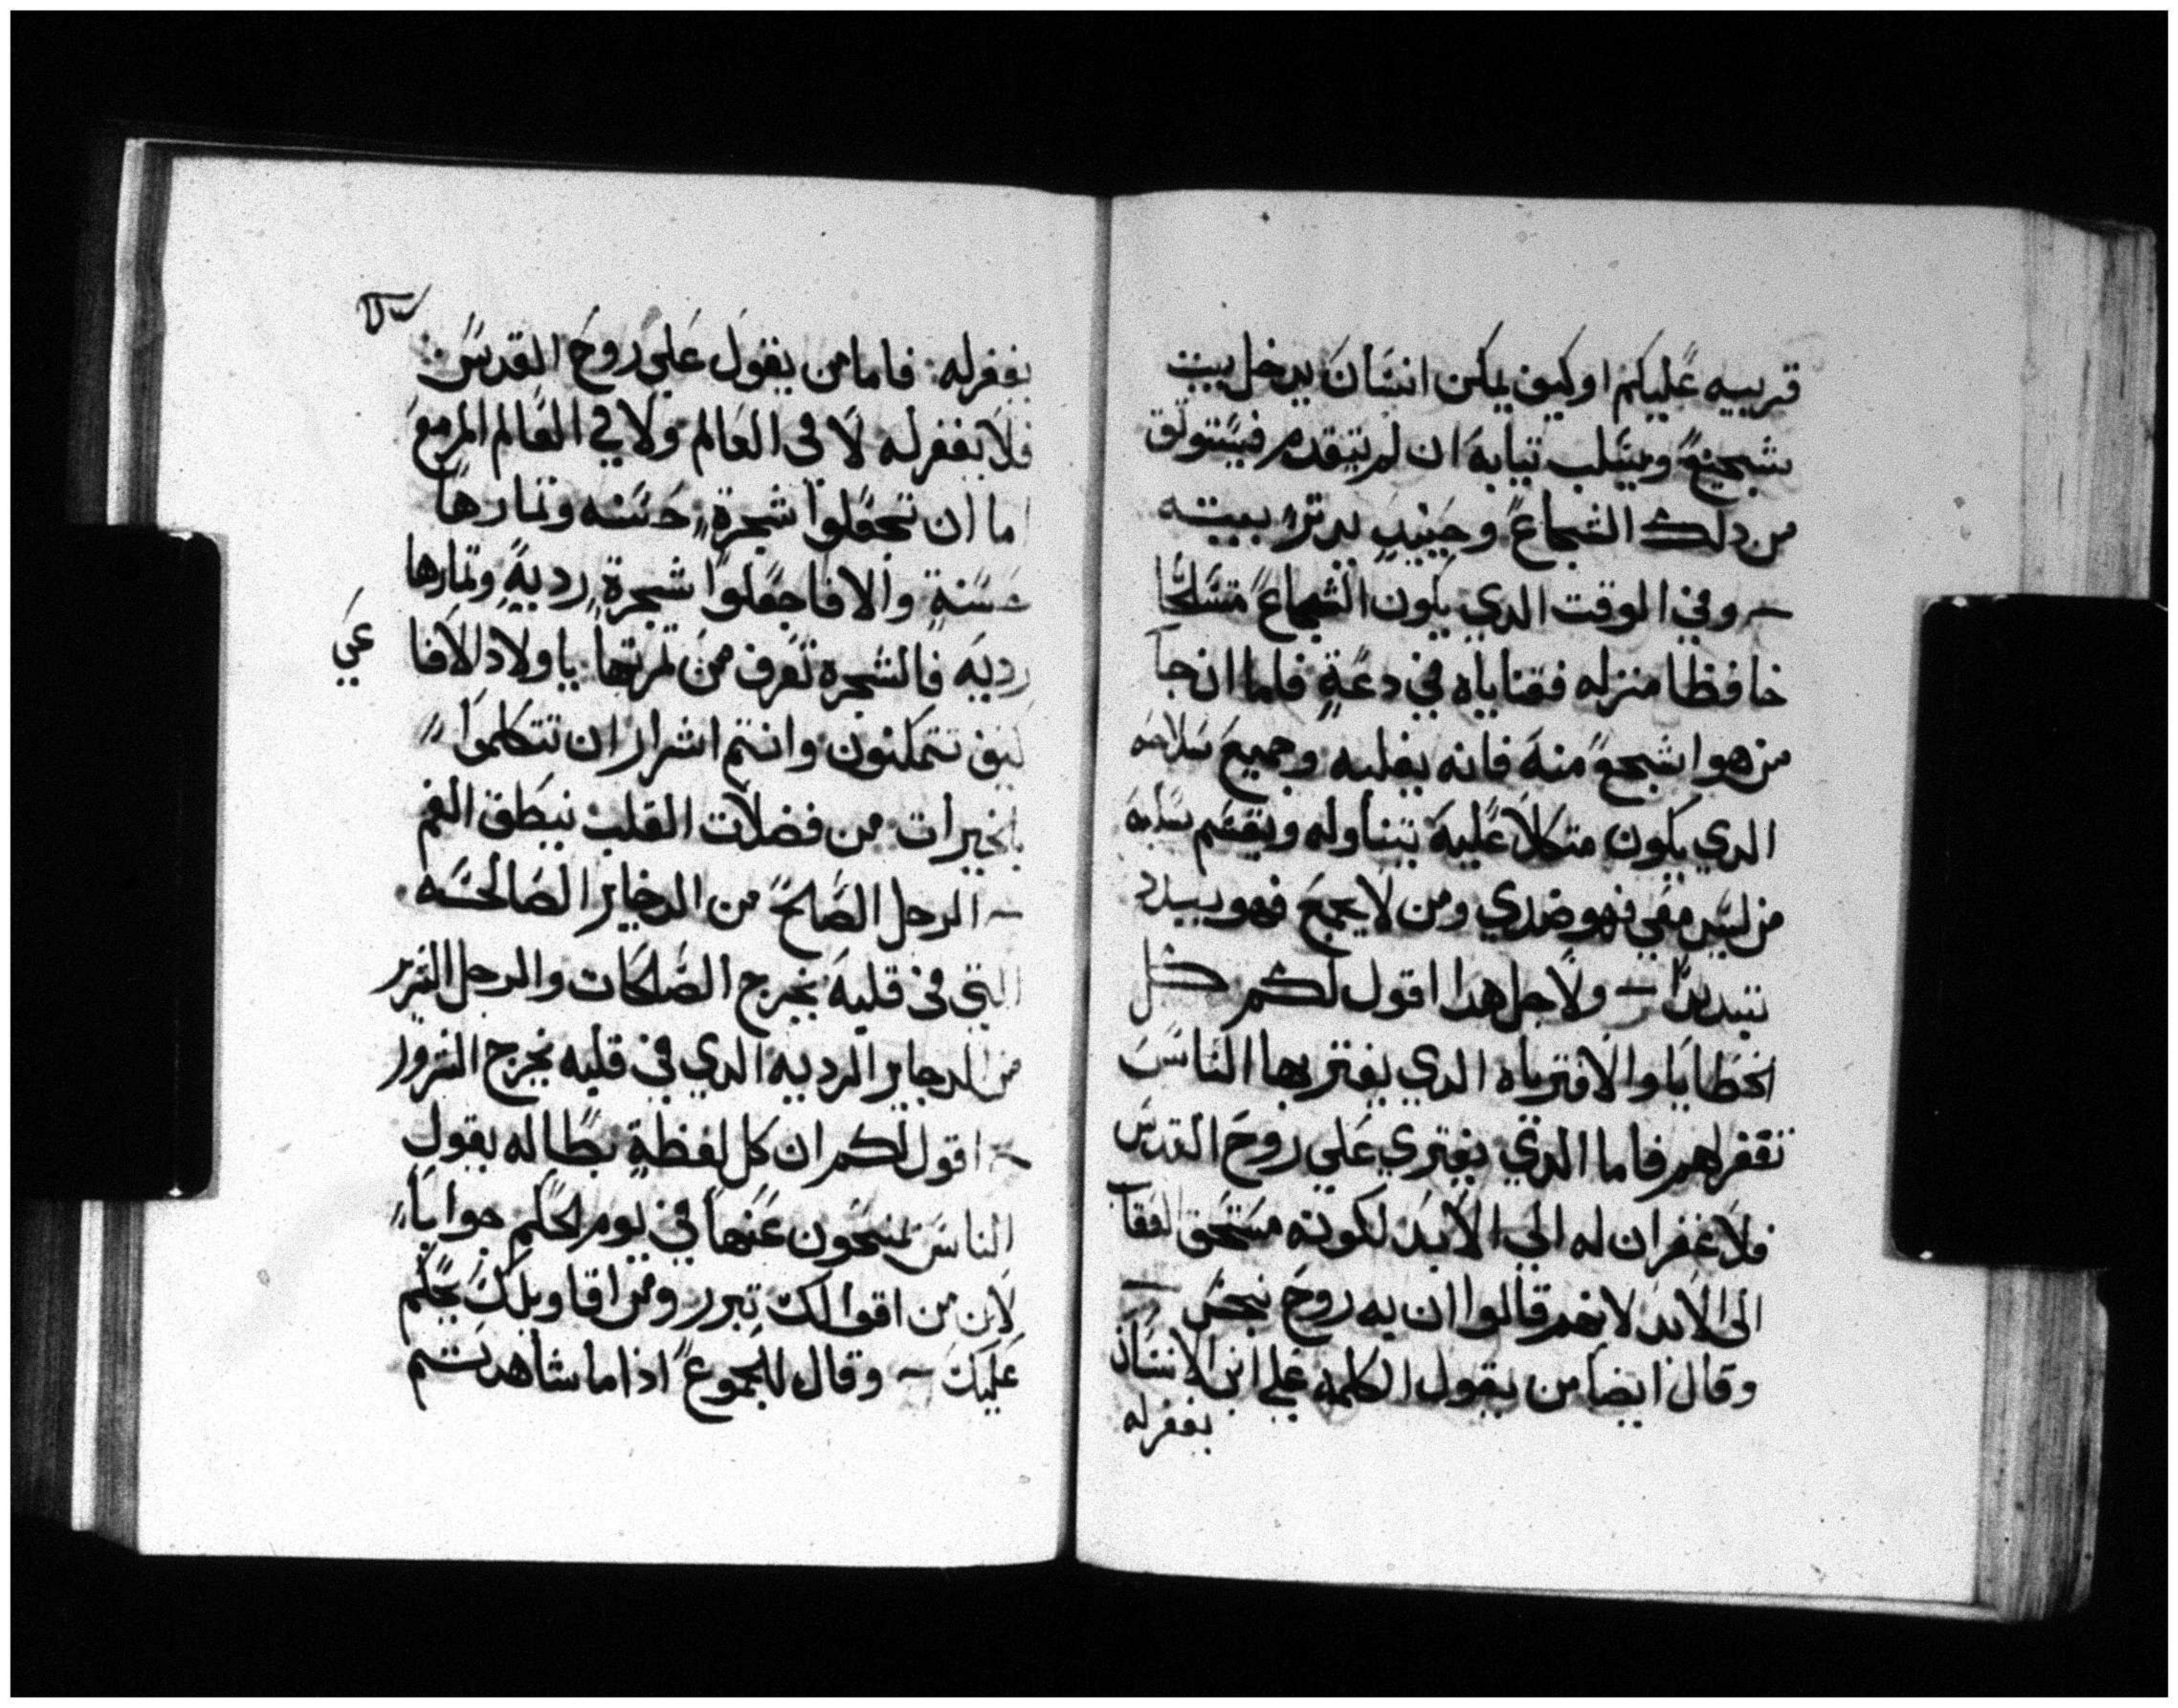 قريبه عليكم او كيف يمكن انسان يدخل بيت
شجيع ويسلب تيابه ان لم يتقدم فيستوتق
من دلك الشجاع وحينيد يدتر بيته
وفي الوقت الدي يكون الشجاع متسلحا
حافظا منزله فقناياه في دعة فاما ان جا
من هو اشجع منه فانه يغلبه وجميع سلاحه
الدي يكون متكلا عليه يتناوله ويقسم سلبه
من ليس معي فهو ضدي ومن لا يجمع فهو يبدد
تبديدا ولاجل هدا اقول لكم كل
الخطايا والافترياه الدي يفتريها الناس
تغفر لهم فاما الدي يفتري علي روح القدس
فلا غفران له الي الابد لكونه مستحق العقاب
الى الابد لانهم قالوا ان به روح نجس
وقال ايضا من يقول الكلمة علي ابن الانسان
يغفر له
يغفر له فاما من يقول علي روح القدس
فلا يغفر له لا في العالم ولا في العالم المزمع
اما ان تجعلوا شجرة حسنه وتمارها
حسنة والا فاجعلوا شجرة رديه وتمارها
رديه فالشجره تعرف من تمرتها يا ولاد الافاعي
كيف تتمكنون وانتم اشرار ان تتكلموا
بالخيرات من فضلات القلب ينطق الفم
الرجل الصالح من الدخاير الصالحه
التي في قلبه يخرج الصالحات والرجل الشرير
من الدخاير الرديه الدي في قلبه يخرج الشرور
اقول لكم ان كل لفظة بطاله يقول
الناس يمنحون عنها في يوم الحكم جوابا
لان من اقوالك تبرر ومن اقاويلك يحكم
عليك وقال للجموع اذا ما شاهدتم